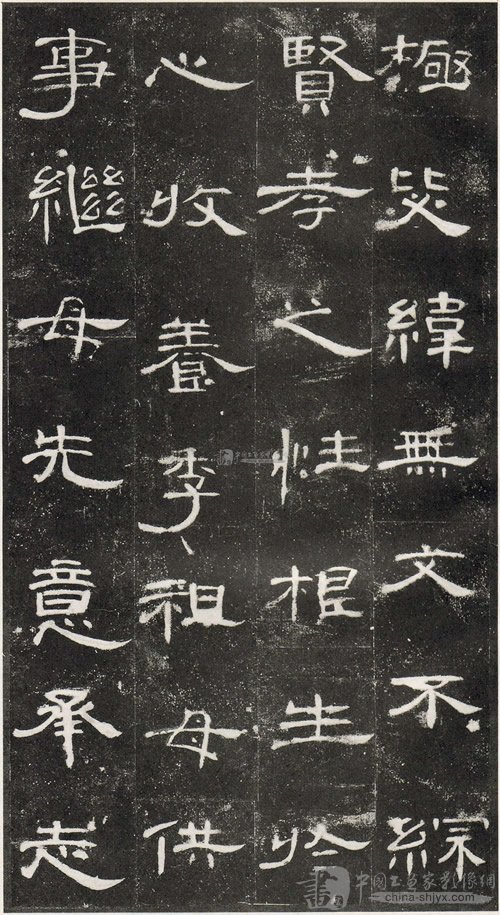 極毖緯無文不綜
賢孝之性根生於
心收養季祖母供
事繼母先意承志
中國書畫家影像網
china-shjyx.com